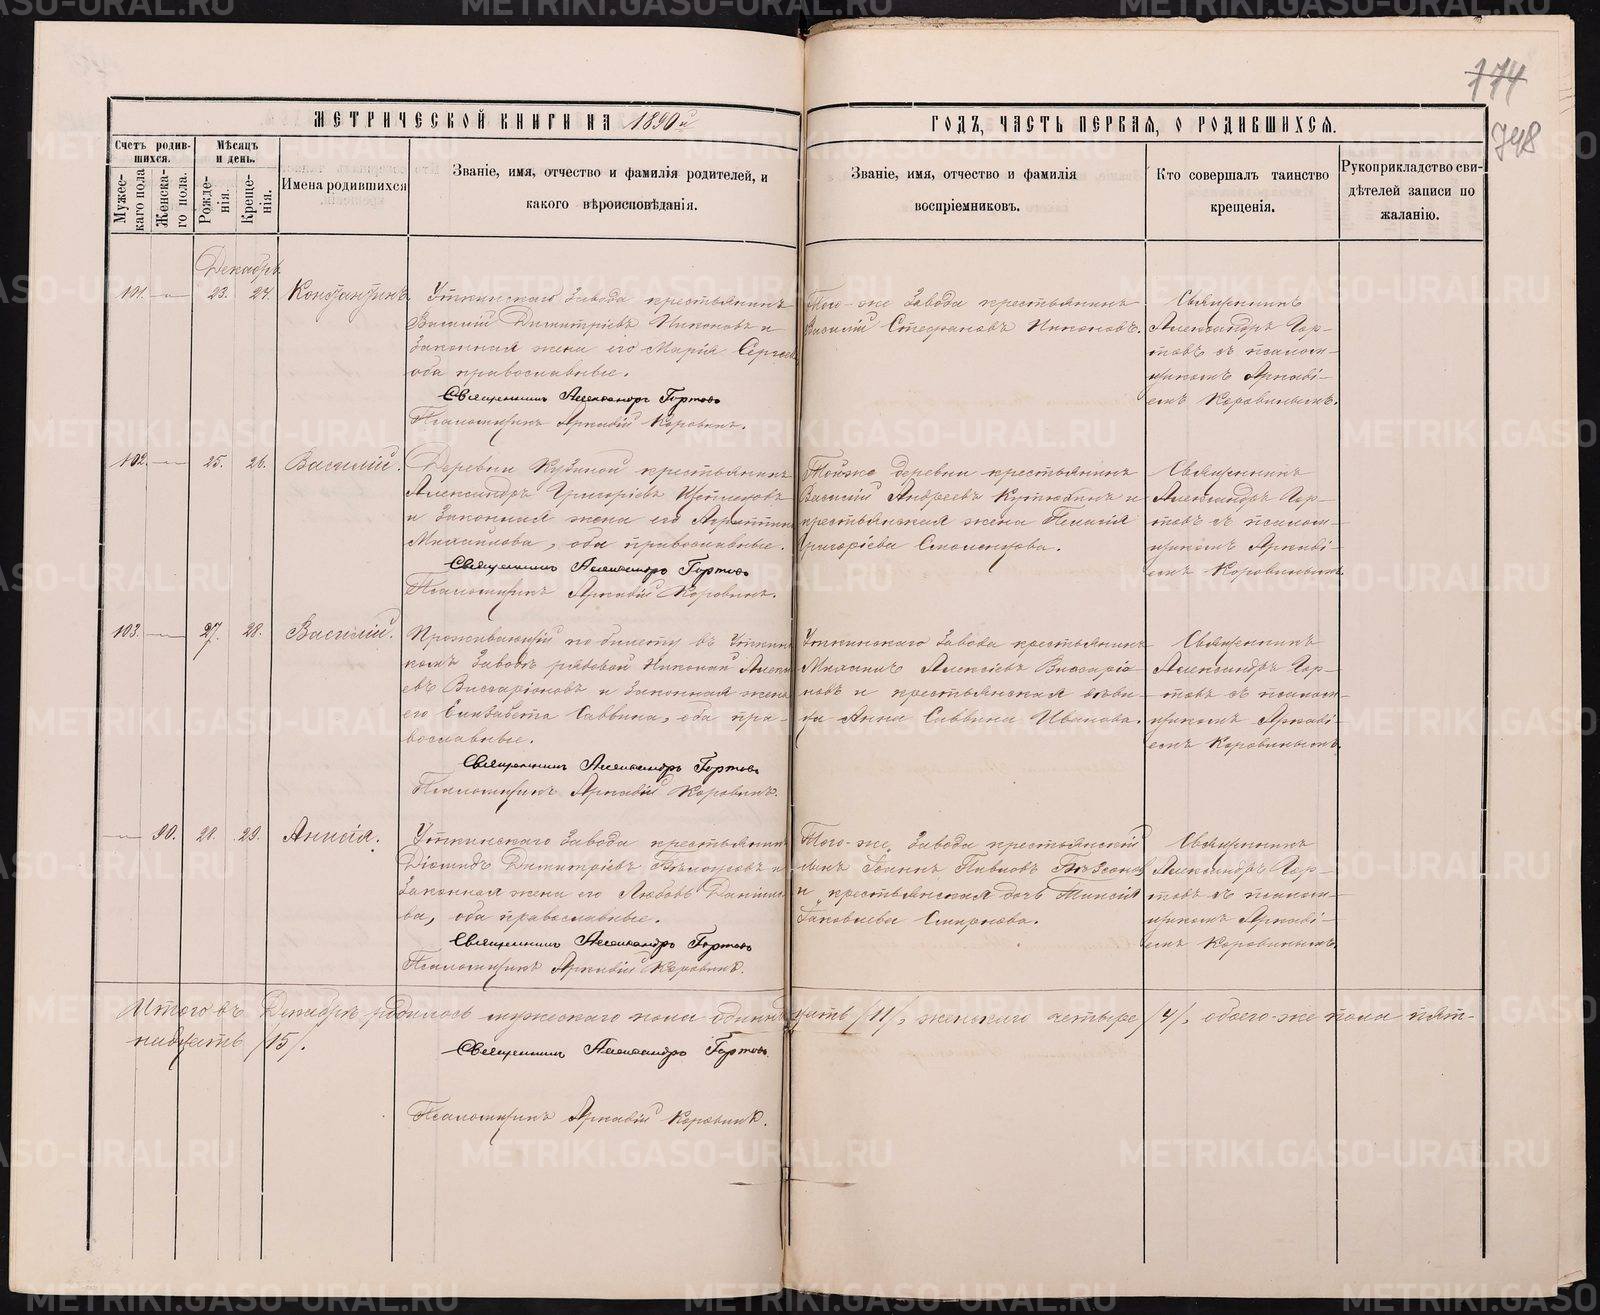 174
748
МЕТРИЧЕСКОЙ КНИГИ НА 1890й
ГОДЪ, ЧАСТЬ ПЕРВАЯ, О РОДИВШИХСЯ.
Счетъ родив-
шихся.
Мужес-
каго пола
Женска-
го пола.
Мѣсяцъ
и день.
Рожде-
нія.
Креще-
нія.
Имена родившихся
Званіе, имя, отчество и фамилія родителей, и
какого вѣроисповѣданія.
Званіе, имя, отчество и фамилія
воспріемниковъ.
Кто совершалъ таинство
крещенія.
Рукоприкладство сви-
дѣтелей записи по
желанію.
Декабрь
101. — 23. 24. Константинъ
Уткинскаго Завода крестьянинъ
Василій Димитріевъ Никоновъ и
законная жена его Марія Сергѣева
оба православные.
Священникъ Александръ Гортовъ
Псаломщикъ Аркадій Коровинъ.
Того-же Завода крестьянинъ
Василій Стефановъ Никоновъ.
Священникъ
Александръ Гор-
товъ съ псалом-
щикомъ Аркаді-
емъ Коровинымъ.
102. — 25. 26. Василій.
Деревни Кузиной крестьянинъ
Александръ Григоріевъ
и законная жена его
Михаилова, оба православные.
Священникъ Александръ Гортовъ
Псаломщикъ Аркадій Коровинъ.
Тойже деревни крестьянинъ
Василій Андреевъ и
крестьянская жена Пелагія
Григоріева
Священникъ
Александръ Гор-
товъ съ псалом-
щикомъ Аркаді-
емъ Коровинымъ
103. — 27. 28. Василій.
Проживающій по билету въ Уткинс-
комъ Заводѣ рядовой Николай Алексѣ-
евъ Виссаріоновъ и законная жена
его Елизавета Саввина, оба пра-
вославные.
Священникъ Александръ Гортовъ
Псаломщикъ Аркадій Коровинъ.
Уткинскаго Завода крестьянинъ
Михаилъ Алексіевъ Виссаріо-
новъ и крестьянская дѣви-
ца Анна Саввина Иванова.
Священникъ
Александръ Гор-
товъ съ псалом-
щикомъ Аркаді-
емъ Коровинымъ.
— 90. 28. 29. Анисія.
Уткинскаго Завода крестьянинъ
Діомидъ Димитріевъ и
законная жена его Любовь Даніило-
ва, оба православные.
Священникъ Александръ Гортовъ
Псаломщикъ Аркадій Коровинъ.
Того-же Завода крестьянскій
сынъ Іоаннъ Павловъ
и крестьянская дочь Таисія
Іаковлева Смирнова.
Священникъ
Александръ Гор-
товъ съ псалом-
щикомъ Аркаді-
емъ Коровинымъ.
Итого въ Декабрѣ родилось мужескаго пола одиннадцать /11/, женскаго четыре /4/, обоего-же пола пят-
надцать /15/.
Священникъ Александръ Гортовъ
Псаломщикъ Аркадій Коровинъ.
METRIKI.GASO-URAL.RU